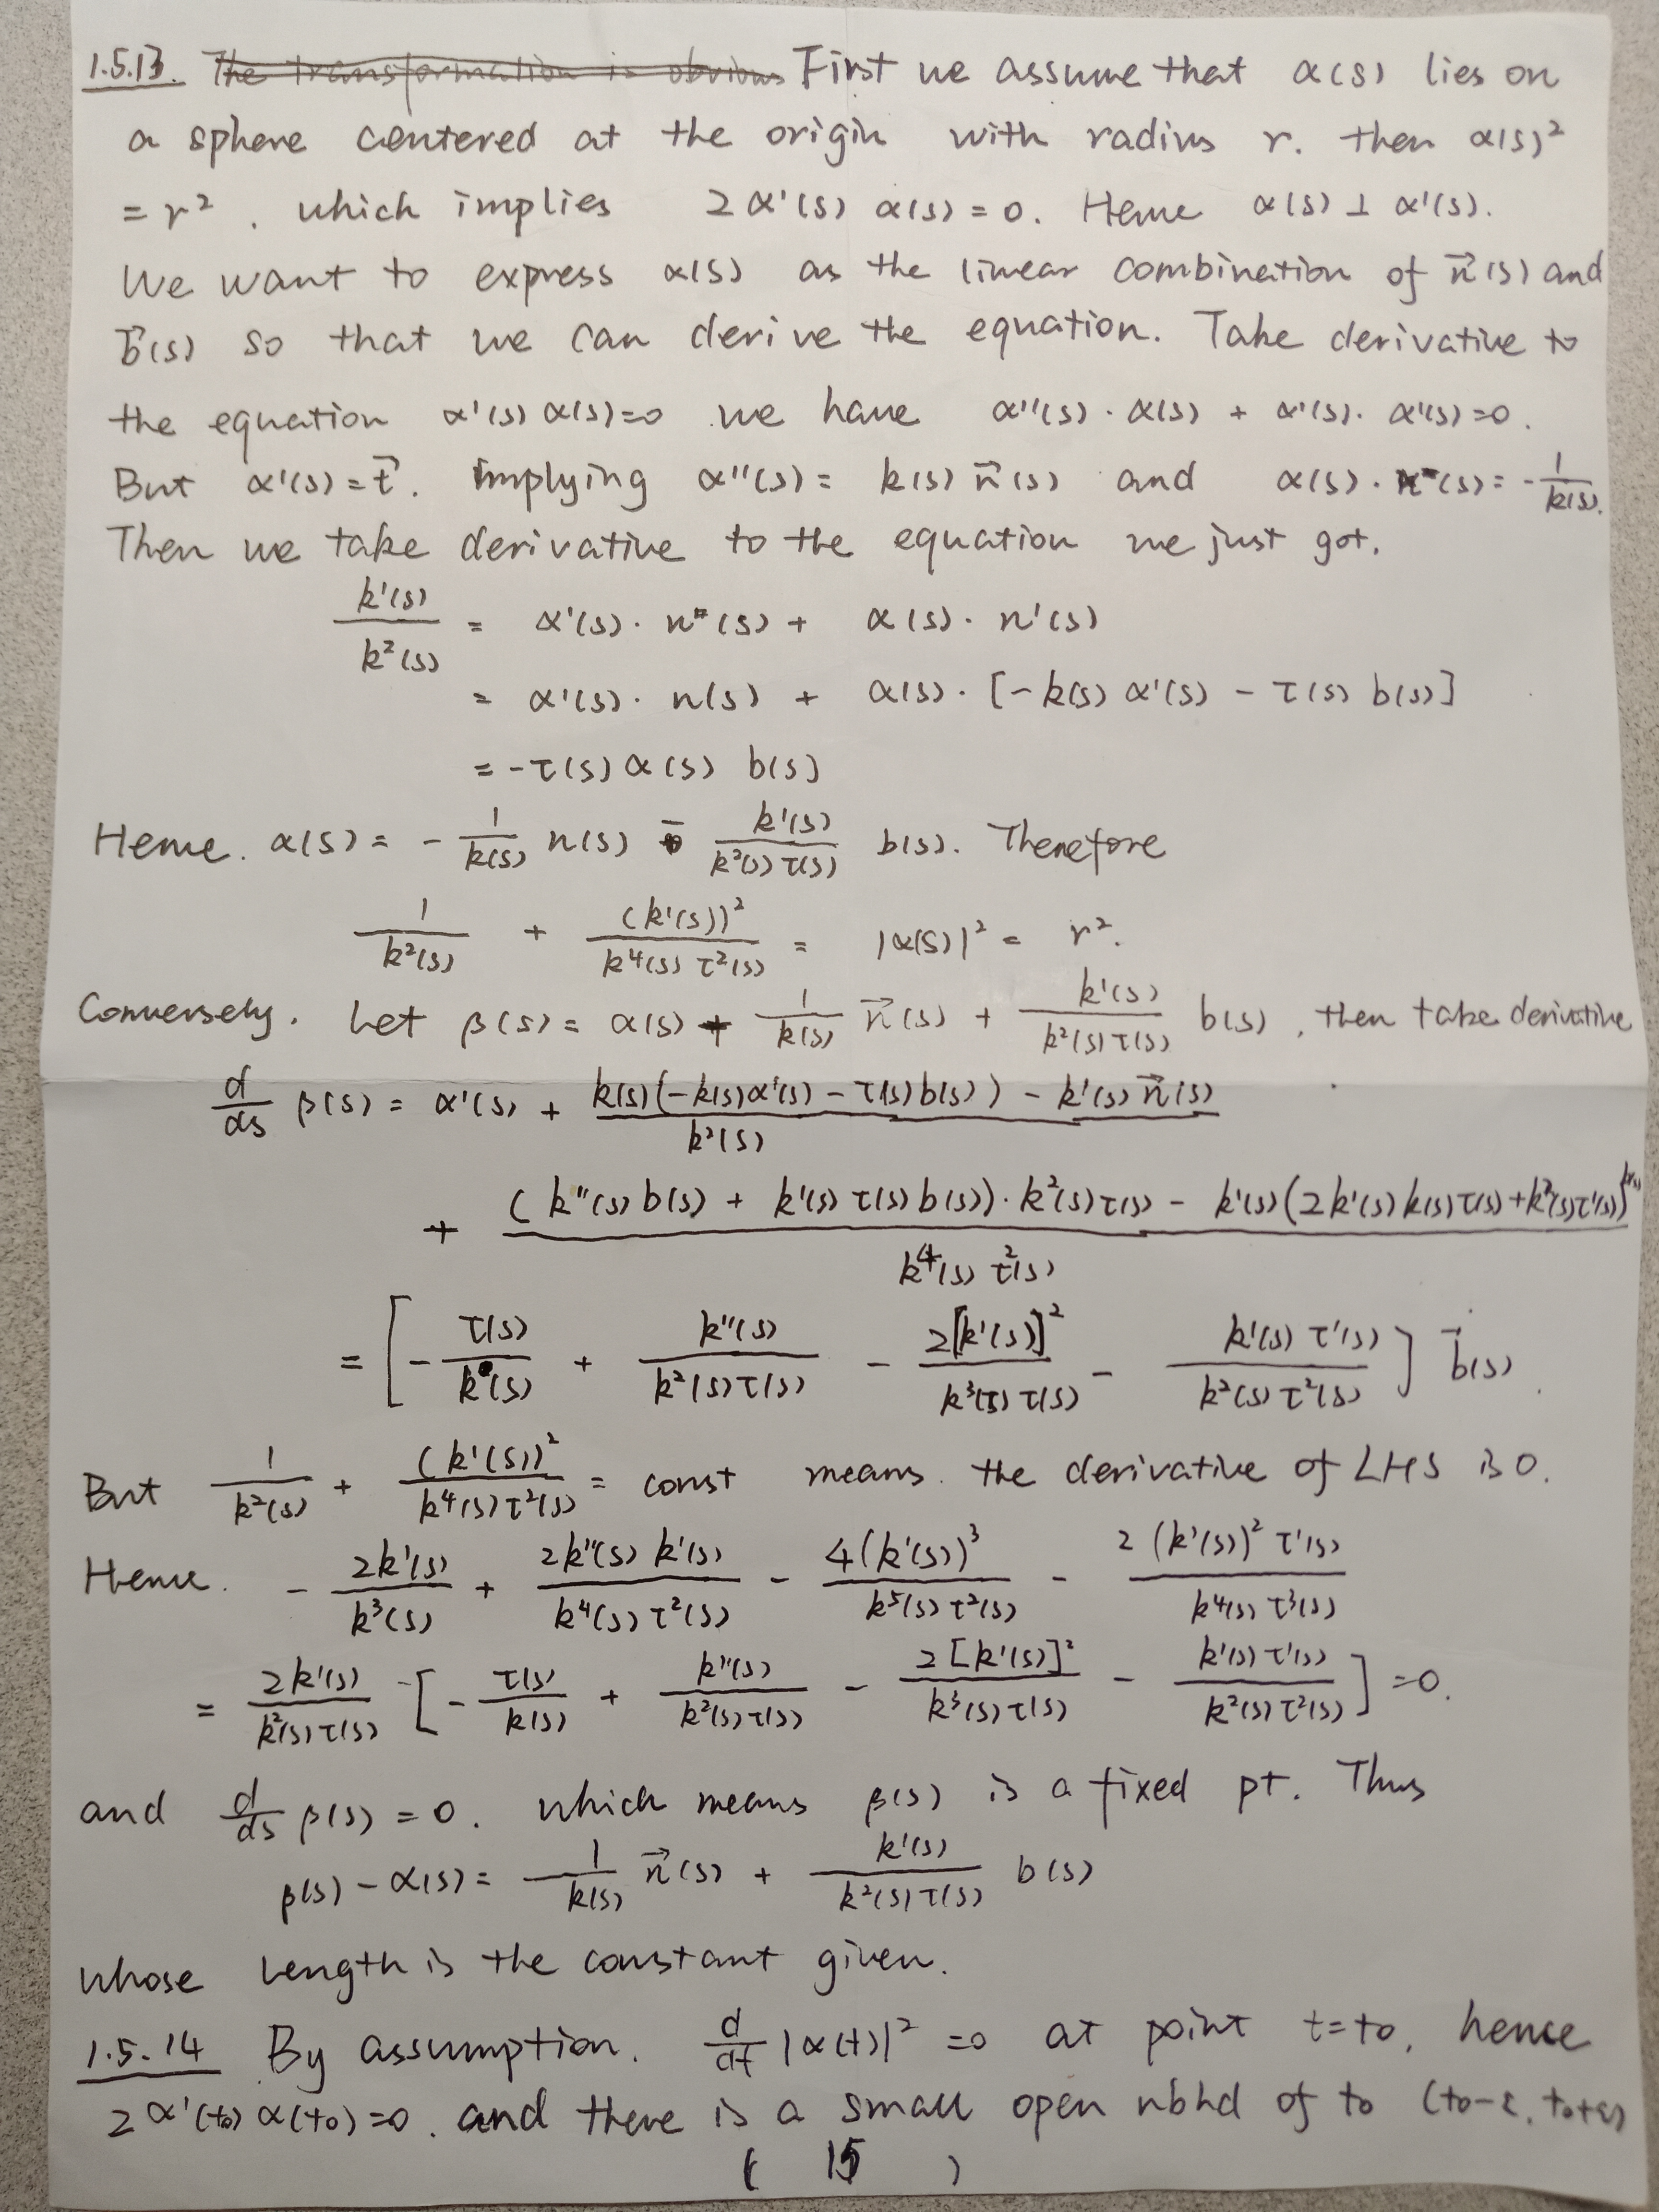 1.5.13. The transformation is obvious First we assume that α(s) lies on
a sphere centered at the origin with radius r. then α(s)²
= r², which implies 2α'(s) α(s) = 0. Hence α(s) ⊥ α'(s).
We want to express α(s) as the linear combination of n⃗(s) and
b⃗(s) so that we can derive the equation. Take derivative to
the equation α'(s) α(s)=0 we have α''(s)·α(s) + α'(s)·α'(s)=0.
But α'(s)=t⃗. implying α''(s) = k(s) n⃗(s) and α(s)·n(s) = -1/k(s).
Then we take derivative to the equation we just got.
k'(s)/k²(s) = α'(s)·n(s) + α(s)·n'(s)
= α'(s)·n(s) + α(s)·[-k(s) α'(s) - τ(s) b(s)]
= -τ(s) α(s) b(s)
Hence. α(s) = -1/k(s) n(s) - k'(s)/k²(s)τ(s) b(s). Therefore
1/k²(s) + (k'(s))²/k⁴(s) τ²(s) = |α(s)|² = r².
Conversely. Let β(s) = α(s) + 1/k(s) n⃗(s) + k'(s)/k²(s)τ(s) b(s), then take derivative
d/ds β(s) = α'(s) + k(s)(-k(s)α'(s) - τ(s)b(s)) - k'(s) n⃗(s)/k²(s)
+ (k''(s) b(s) + k'(s) τ(s) b(s))·k²(s)τ(s) - k'(s)(2k'(s)k(s)τ(s)+k²(s)τ'(s))/k⁴(s) τ²(s)
= [-τ(s)/k(s) + k''(s)/k²(s)τ(s) - 2[k'(s)]²/k³(s)τ(s) - k'(s) τ'(s)/k²(s) τ²(s)] b⃗(s).
But 1/k²(s) + (k'(s))²/k⁴(s)τ²(s) = const means. the derivative of LHS is 0.
Hence. -2k'(s)/k³(s) + 2k''(s) k'(s)/k⁴(s) τ²(s) - 4(k'(s))³/k⁵(s) τ²(s) - 2(k'(s))² τ'(s)/k⁴(s) τ³(s)
= 2k'(s)/k²(s)τ(s) · [-τ(s)/k(s) + k''(s)/k²(s)τ(s) - 2[k'(s)]²/k³(s)τ(s) - k'(s) τ'(s)/k²(s) τ²(s)] = 0.
and d/ds β(s) = 0. which means β(s) is a fixed pt. Thus
β(s) - α(s) = 1/k(s) n⃗(s) + k'(s)/k²(s)τ(s) b(s)
whose length is the constant given.
1.5.14 By assumption. d/dt |α(t)|² =0 at point t=t₀, hence
2α'(t₀) α(t₀) =0. and there is a small open nbhd of t₀ (t₀-ε, t₀+ε)
( 15 )